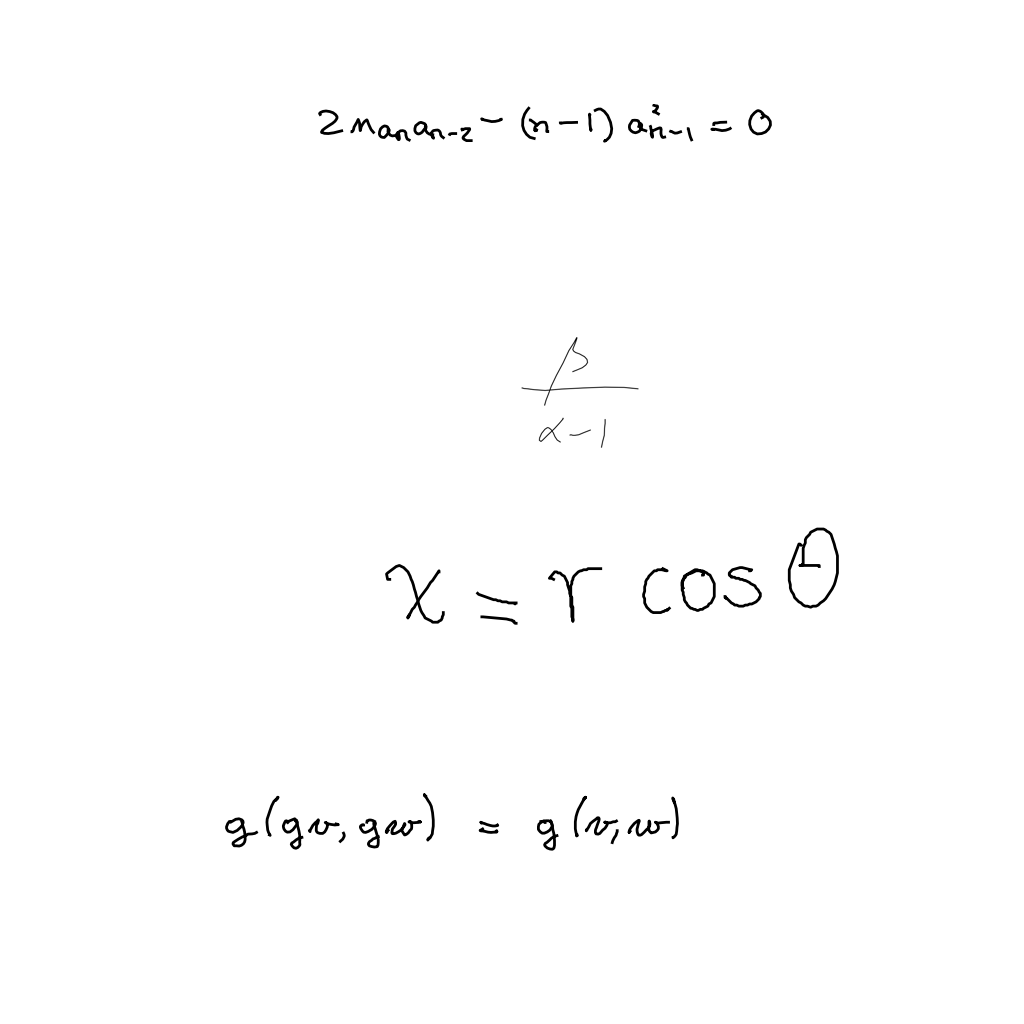 2na_na_{n-2} - (n-1)a_{n-1}^2 = 0
\frac{β}{α-1}
x = r cos θ
g(gv, gw) = g(v, w)